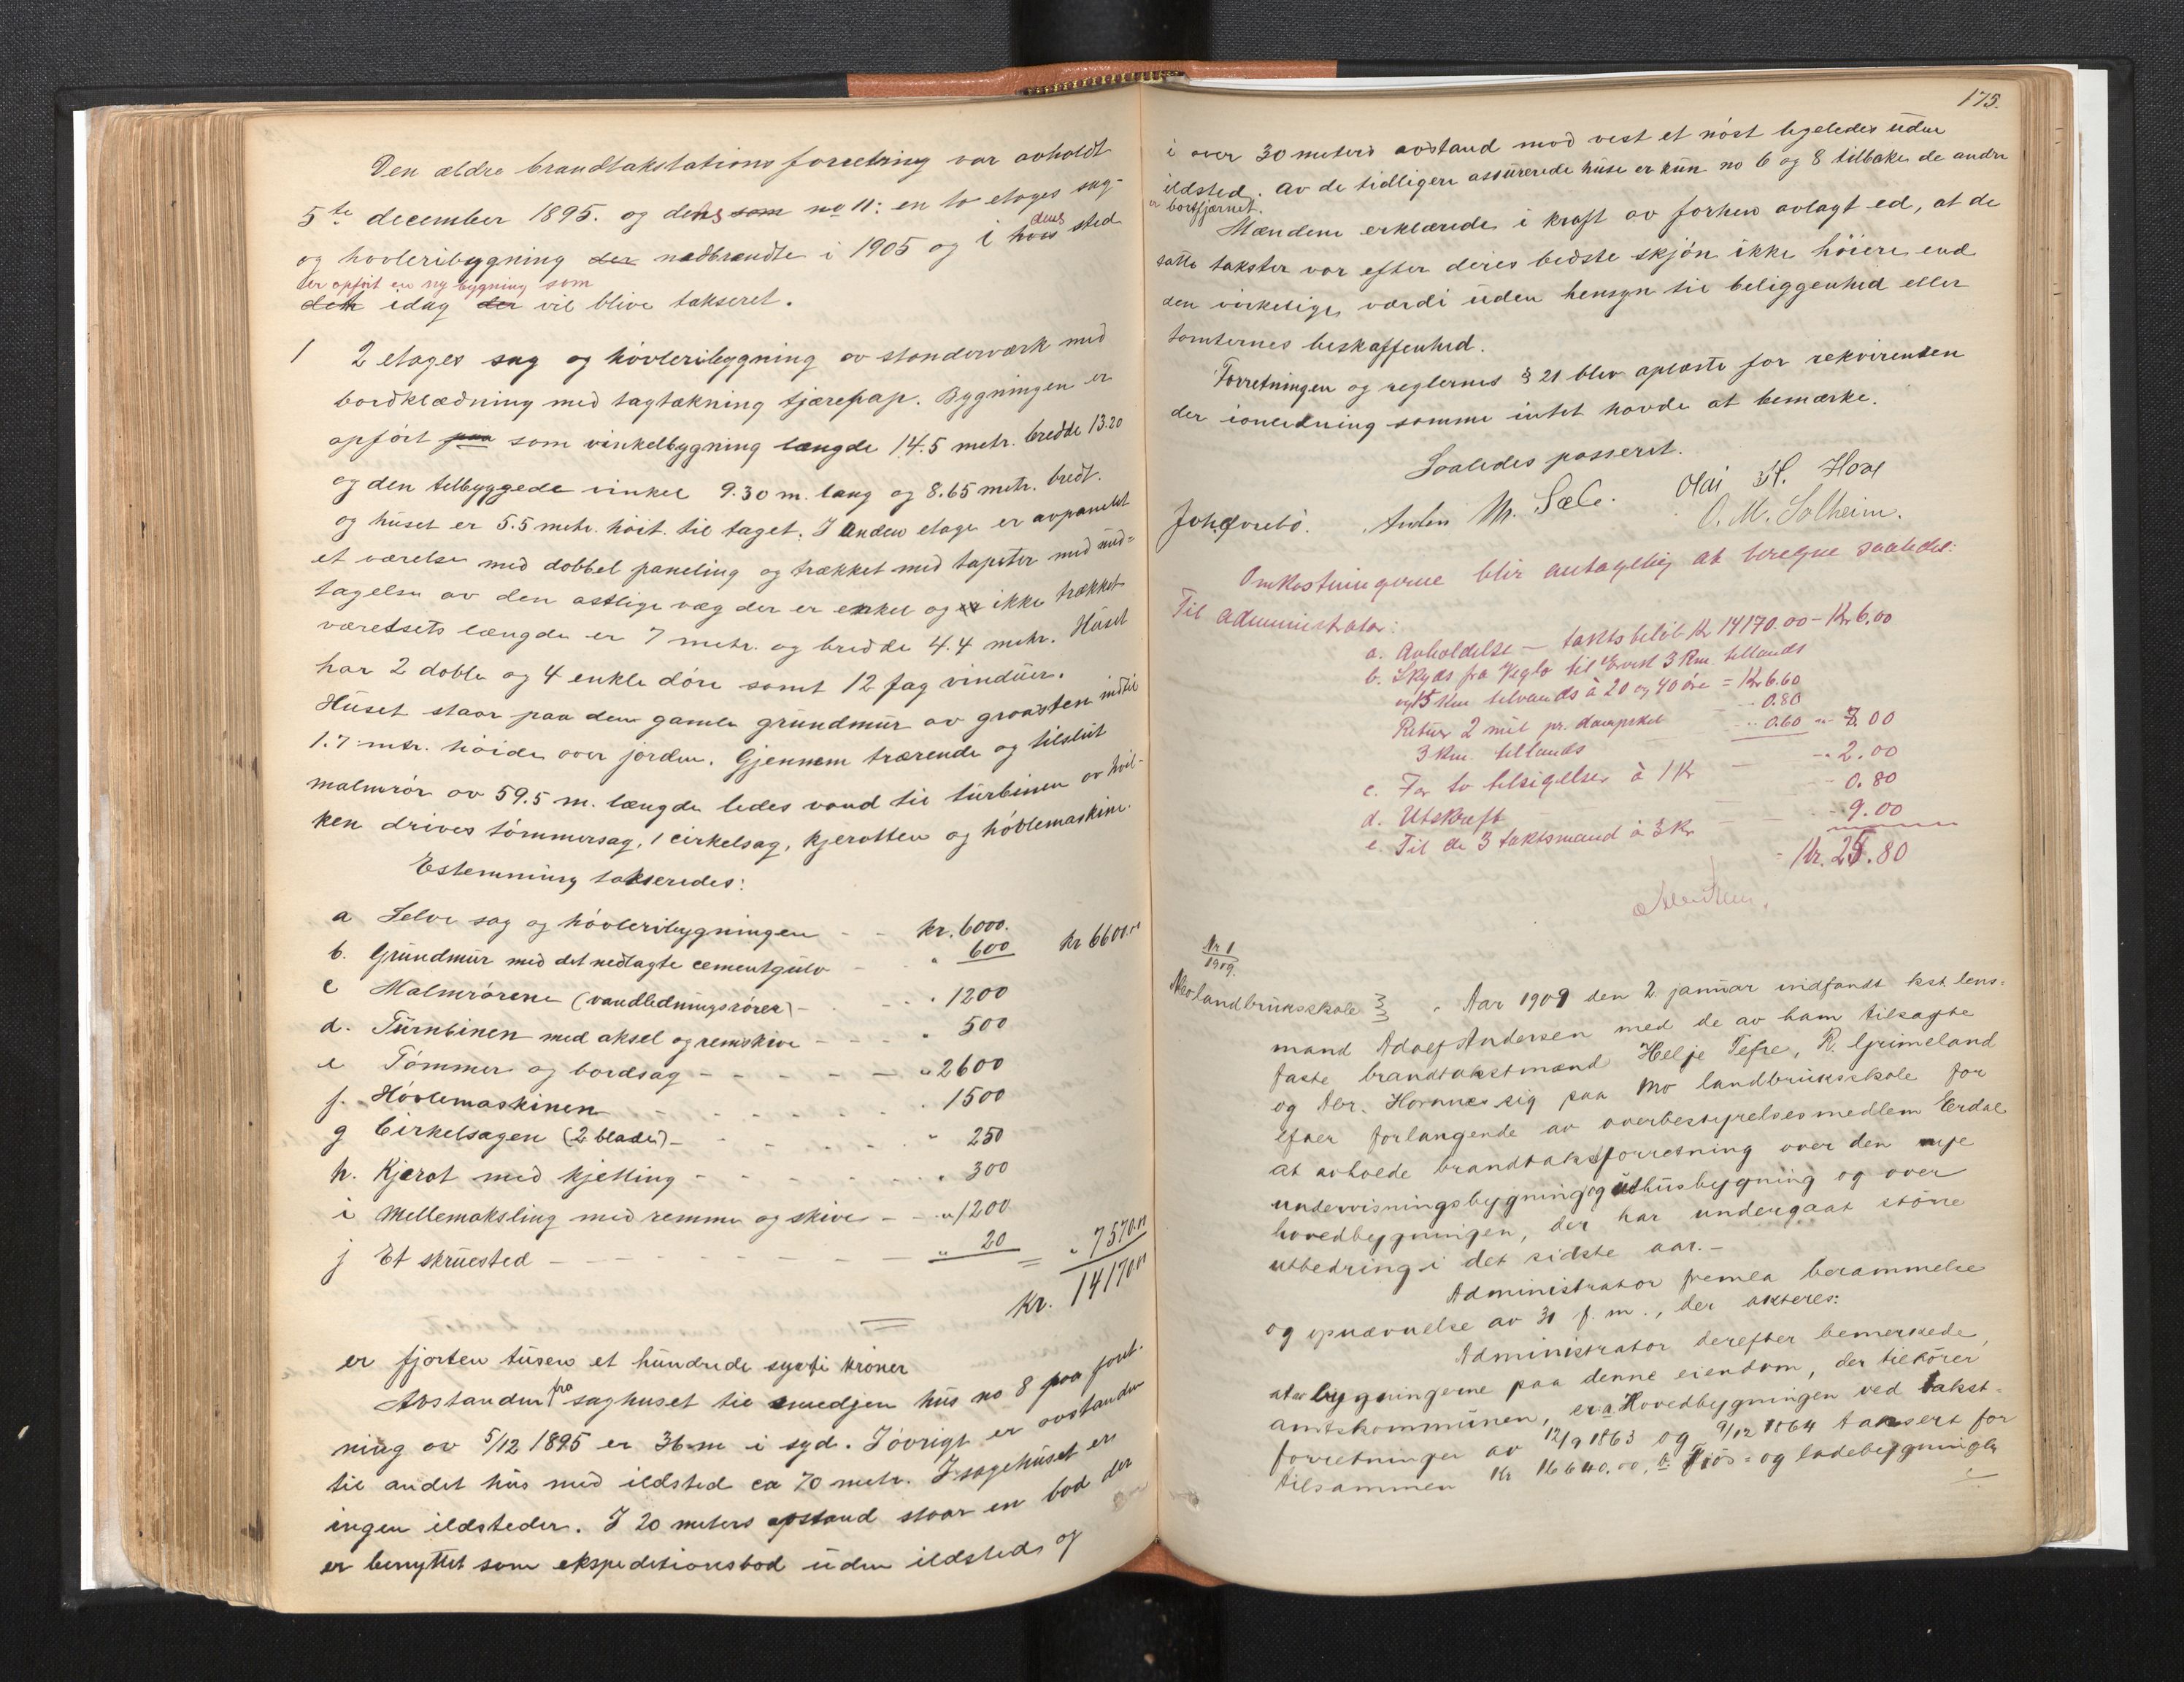 Den ældre brandtakstationsforretning var avholdt
5te december 1895. og dens som no 11: en to etages sag-
og hovleribygning der nedbrændte i 1905 og i hvis dens sted
er opført en ny bygning som
det idag der vil blive takseret.
1 2 etages sag og hövleribygning av standerværk med
bordklædning med tagtækning tjærepap. Bygningen er
opført paa som vinkelbygning længde 14.5 metr. bredde 13.20
og den tilbyggede vinkel 9.30 m. lang og 8.65 metr. bredt.
og huset er 5.5 metr. höit til taget. I anden etage er avpanelet
et værelse med dobbel paneling og trækket med tapeter med und=
tagelse av den østlige væg der er enkel og er ikke trækket
værelsets længde er 7 metr. og bredde 4.4 metr. Huset
har 2 doble og 4 enkle döre samt 12 fag vinduer.
Huset staar paa den gamle grundmur av graasten indtil
1.7 mtr. höide over jorden. Gjennem trærende og tilslut
malmrör av 59.5 m. længde ledes vand til turbinen av hvil-
ken drives tömmersag, 1 cirkelsag, kjerratten og hövlemaskine.
Estemning takseredes:
a Selve sag og hövleribygningen - - kr. 6000.
b. Grundmur med det nedlagte cementgulv - " 600 kr 6600.00
c Malmrörene (vandledningsrörer) - - - " 1200
d. Turnbinen med aksel og remskive - - - " 500
e Tömmer og bordsag - - - - - " 2600
f. Hövlemaskinen - - - - " 1500
g Cirkelsagen (2 blader) - - - - " 250
h. Kjerat med kjetting - - - - " 300
i Mellemaksling med remme og skiver - - " 1200
j Et skruested - - - - - " 20 = " 7570.00
kr. 14170.00
er fjorten tusen et hundrede sytti kroner
Avstanden fra saghuset til smedjen hus no 8 paa forret-
ning av 5/12 1895 er 36 m i syd. I övrigt er avstanden
til andet hus med ildsted ca 70 metr. I sagehuset er
ingen ildsteder. I 20 meters avstand staar en bod der
er benyttet som ekspeditionsbod uden ildsted og
175.
i over 30 meters avstand mod vest et nöst ligeledes uden
ildsted. Av de tidligere assurerede huse er kun no 6 og 8 tilbake de andre
er bortfjernet.
Mændene erklærede i kraft av forhen avlagt ed, at de
satte takster var efter deres bedste skjön ikke höiere end
den virkelige værdi uden hensyn til beliggenhed eller
tomternes beskaffenhed.
Forretningen og reglernes § 21 blev oplæste for rekvirenten
der i anledning samme intet havde at bemærke.
Saaledes passeret.
Anders M. Sæle. Olai H. Hove
O. M. Solheim.
Omkostningerne blir antagelig at beregne saaledes:
Til administrator:
a. Avholdelse - takstsbeløb Kr 14170.00 - Kr 6.00
b. Skyds fra til 3 Km. tillands
og 15 Km tilvands à 20 og 40 øre = Kr 6.60
Retur 2 mil pr. dampskel - - 0.80
3 Km. tillands - - 0.60 - " 8.00
c. For to tilsigelser à 1 Kr - - " 2.00
d. Utskrift - - 0.80
e. Til de 3 takstmænd à 3 Kr - - 9.00
= Kr. 25.80
Nr 1
1909.
Mo landbruksskole } Aar 1909 den 2 januar indfandt kst. lens=
mand Adolf Andersen med de av ham tilsagte
faste brandtakstmænd Helje Tefre, R. Grimeland
og Abr. Hornnes sig paa Mo landbruksskole for
efter forlangende av overbestyrelsesmedlem Erdal
at avholde brandtakstforretning over den nye
undervisningsbygning og uthusbygning og over
hovedbygningen, der har undergaat större
utbedring i det sidste aar. -
Administrator fremla berammelse
og opnævnelse av 31 f. m., der akteres:
Administrator derefter bemerkede,
at av bygningerne paa denne eiendom, der tilhörer
amtskommunen, er a. Hovedbygningen ved takst-
forretninger av 12/9 1863 og 9/12 1864 taksert for
tilsammen Kr 16640.00, b. Fjös- og ladebygningen